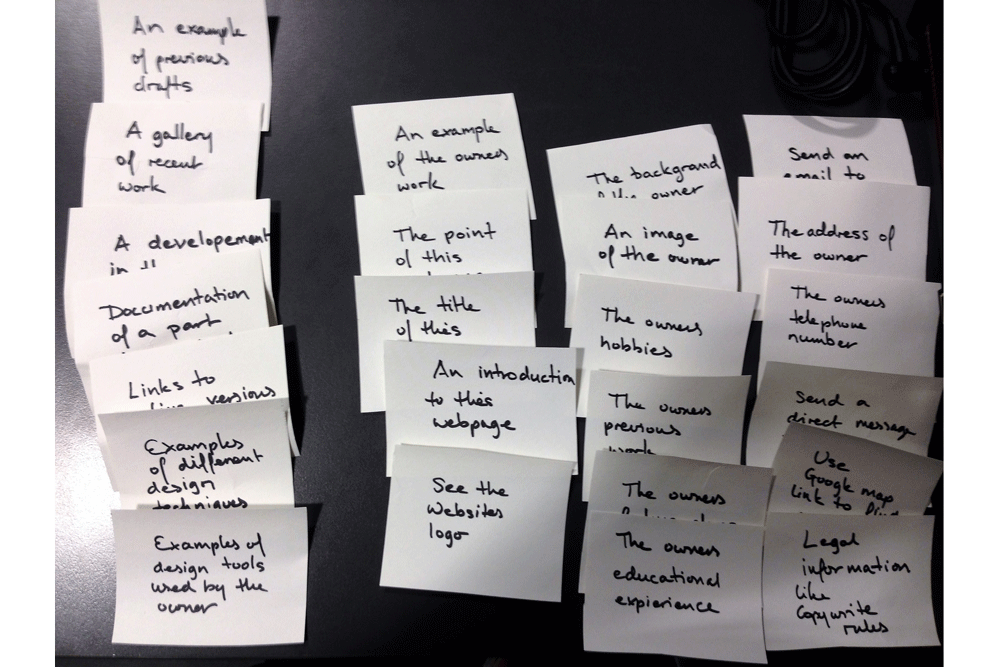 An example
of previous
drafts
A gallery
of recent
work
A developement
in
Documentation
of a part
Links to
live versions
Examples
of different
design
techniques
Examples of
design tools
used by the
owner
An example
of the owners
work
The point
of this
The title
of this
An introduction
to this
webpage
See the
Websites
logo
The background
of the owner
An image
of the owner
The owners
hobbies
The owners
previous
work
The owners
The owners
educational
expierience
Send an
email to
The address of
the owner
The owners
telephone
number
Send a
direct message
Use
Google map
link to find
Legal
information
like
Copywrite
rules